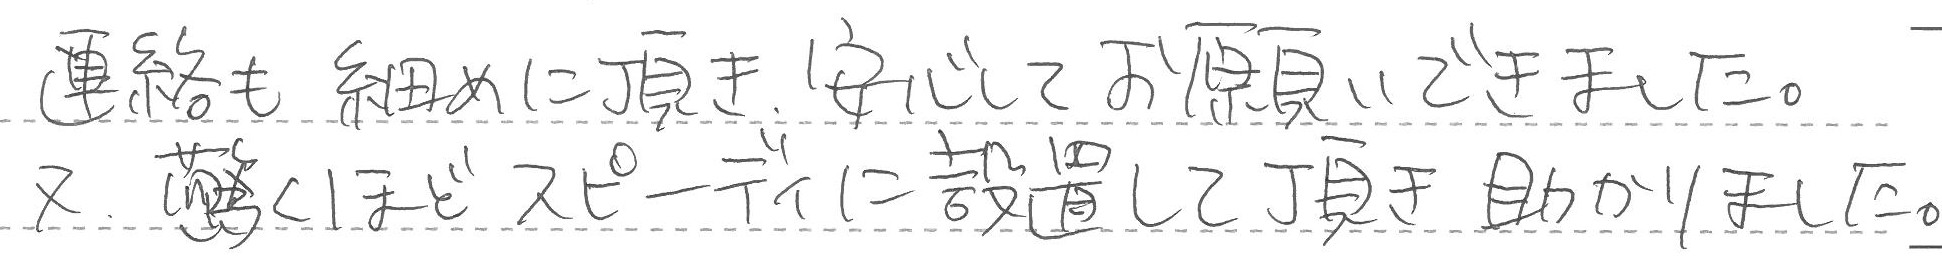 連絡も細めに頂き、安心してお願いできました。
又、驚くほどスピーディに設置して頂き助かりました。